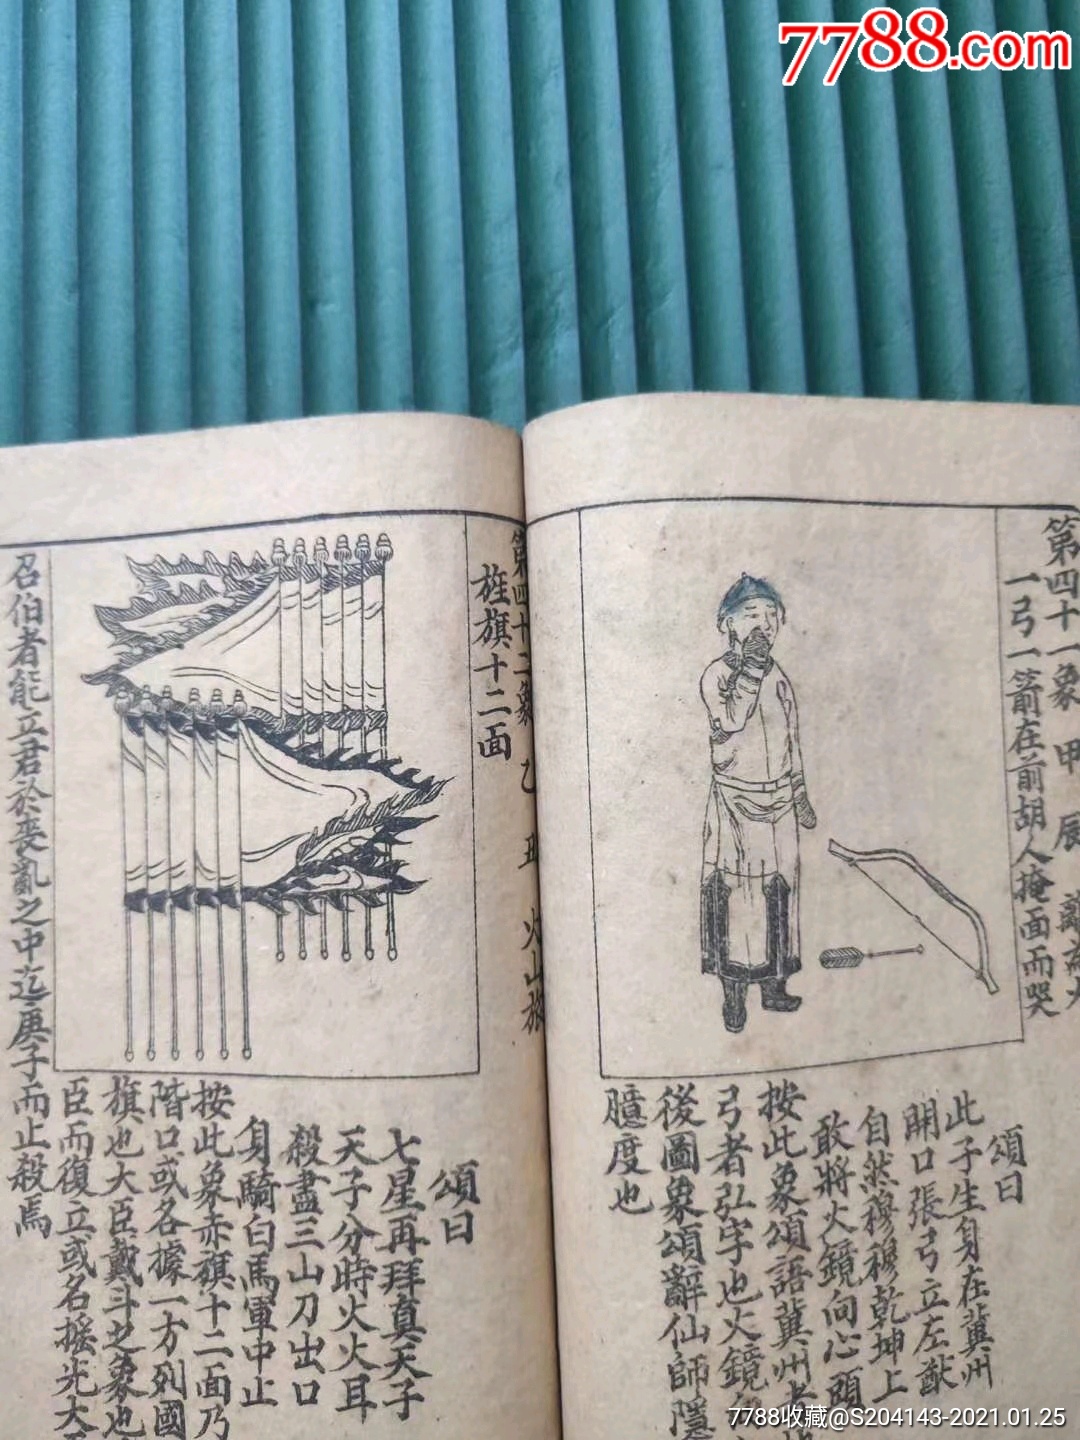 7788.com
第四十一象 甲 辰 離為火
一弓一箭在前胡人掩面而哭
頌曰
此子生身在冀州
開口張弓立左猷
自然穆穆乾坤上
敢將火鏡向心頭
按此象頌語冀州者
弓者弘字也火鏡
後圖象頌辭仙師隱
臆度也
第四十二象 乙 丑 火山旅
旌旗十二面
頌曰
七星再拜真天子
天子分時火火耳
殺盡三山刀出口
身騎白馬軍中止
按此象赤旗十二面乃
階口或各據一方列國
旗也大臣戴斗之象也
臣而復立或名搖光大
召伯者能立君於喪亂之中迄庚子而止殺焉
7788收藏@S204143-2021.01.25